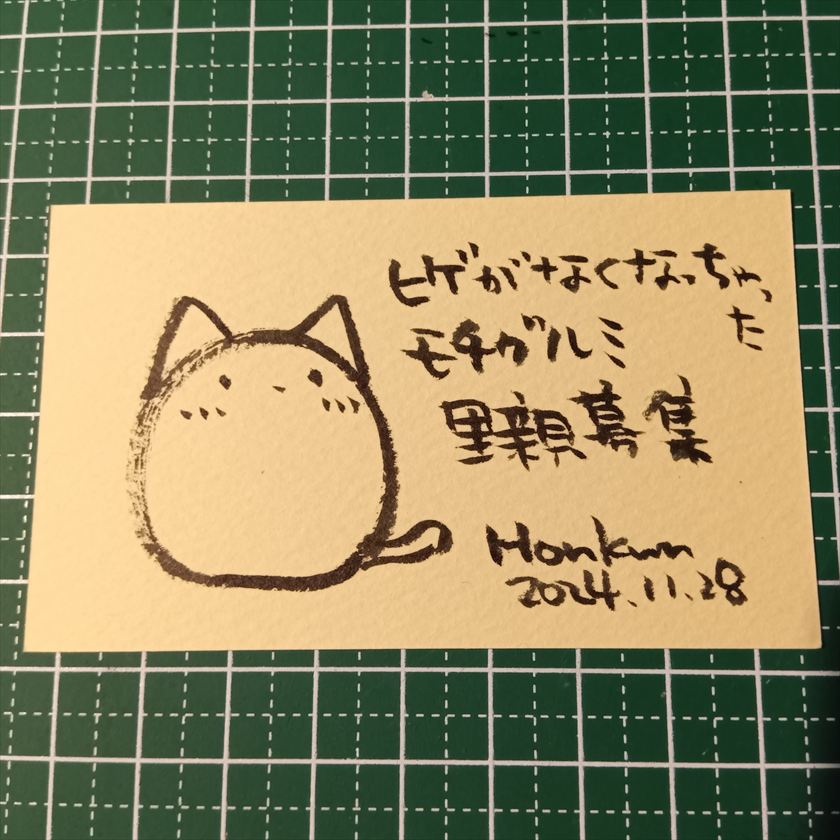 ヒゲがなくなっちゃった
モチグルミ
里親募集
Honkun
2024.11.28